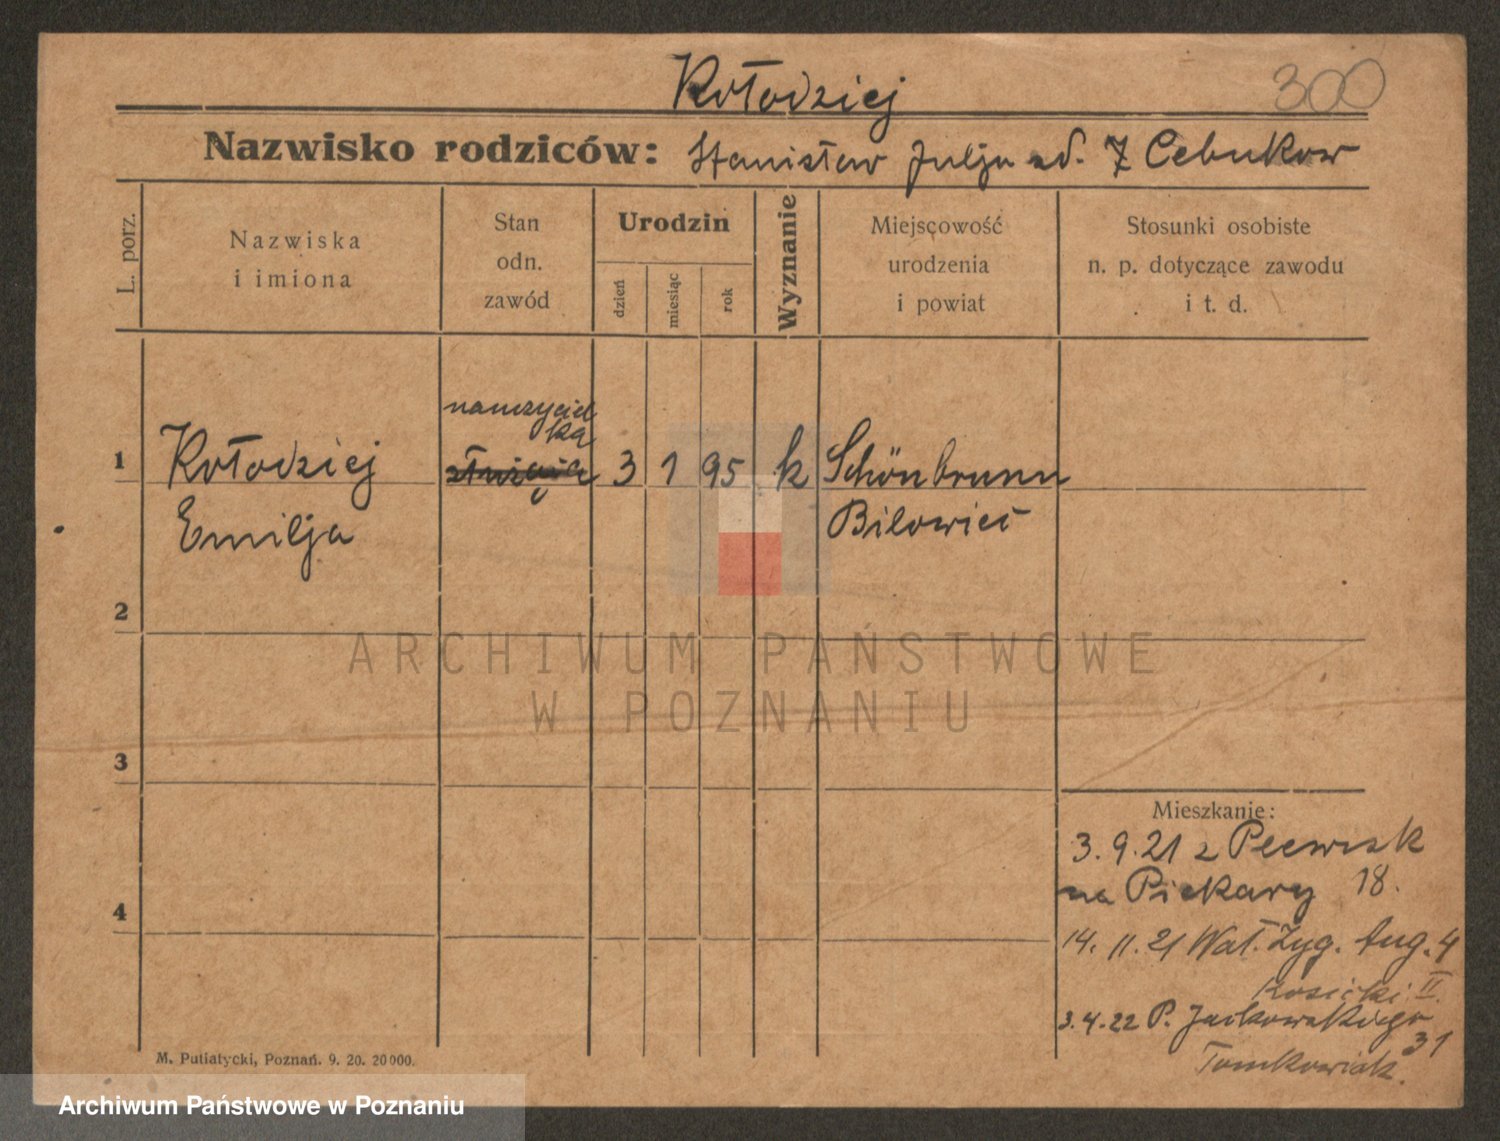 300
Kołodziej
Nazwisko rodziców: Stanisław Julja zd. Z Cebukow
L. porz.
Nazwiska
i imiona
Stan
odn.
zawód
Urodzin
dzień
miesiąc
rok
Wyznanie
Miejscowość
urodzenia
i powiat
Stosunki osobiste
n. p. dotyczące zawodu
i t. d.
nauczyciel
ka
1 Kołodziej 3 1 95 k Schönbrunn
Emilja Bilowiec
2
3
4
Mieszkanie:
3. 9. 21 z Plewisk
na Piekary 18.
14. 11. 21 Wał. Zyg. Aug. 4
Kosicki II.
3. 4. 22 P. Jackowskiego
31
Tomkowiak.
M. Putiatycki, Poznań. 9. 20. 20000.
ARCHIWUM PAŃSTWOWE
W POZNANIU
Archiwum Państwowe w Poznaniu